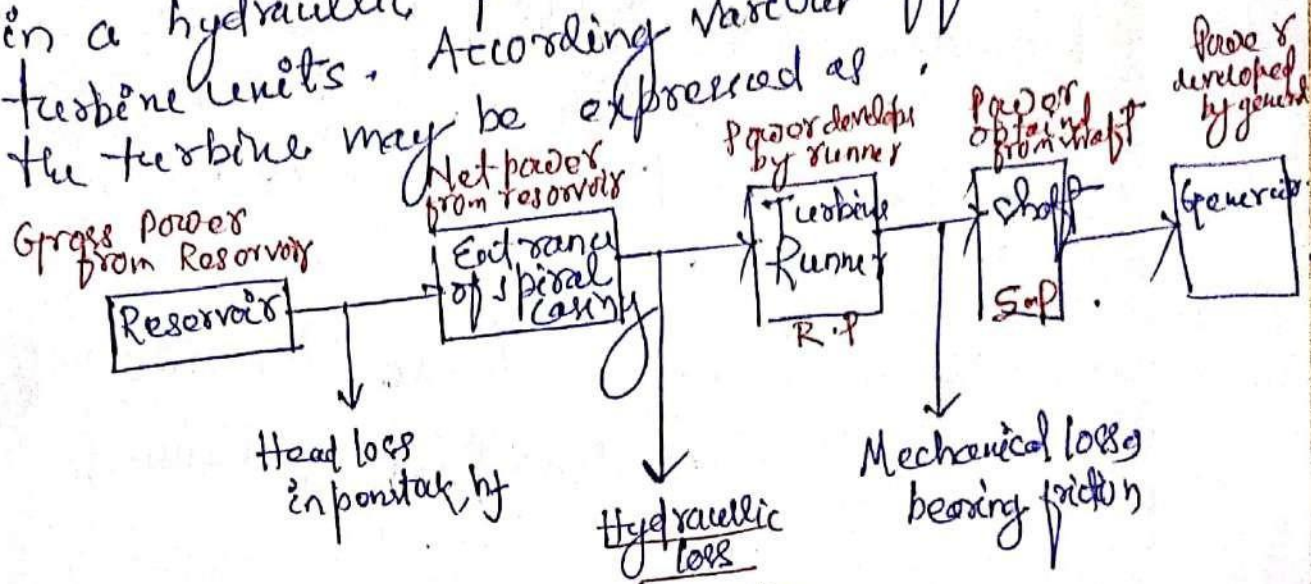 in a hydraulic
turbine units. According various
the turbine may be expressed as
Gross Power
from Reservoir
Reservoir
Net power
from reservoir
Entrance
of spiral
casing
Power develops
by runner
Turbine
Runner
R.P
Power
obtained
from shaft
Shaft
S.P
Power
developed
by gener
Generator
Head loss
in penstock, hf
Hydraullic
loss
Mechanical loss,
bearing friction